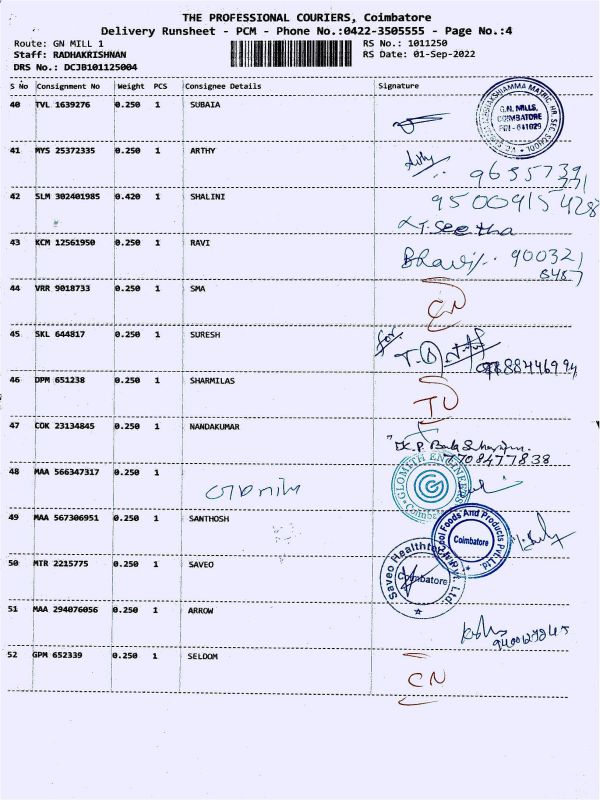 THE PROFESSIONAL COURIERS, Coimbatore
Delivery Runsheet - PCM - Phone No.:0422-3505555 - Page No.:4
Route: GN MILL 1 RS No.: 1011250
Staff: RADHAKRISHNAN RS Date: 01-Sep-2022
DRS No.: DCJB101125004
S No Consignment No Weight PCS Consignee Details Signature
40 TVL 1639276 0.250 1 SUBAIA
G.N. MILLS,
COIMBATORE
641029
41 MYS 25372335 0.250 1 ARTHY
42 SLM 302401985 0.420 1 SHALINI
T. Seetha
43 KCM 12561950 0.250 1 RAVI
900321
8487
44 VRR 9018733 0.250 1 SMA
CN
45 SKL 644817 0.250 1 SURESH
for
46 DPM 651238 0.250 1 SHARMILAS
47 COK 23134845 0.250 1 NANDAKUMAR
7708477838
48 MAA 566347317 0.250 1
GLOMITH ENGINEERS
49 MAA 567306951 0.250 1 SANTHOSH
Foods And Products Pvt. Ltd.
Coimbatore
50 MTR 2215775 0.250 1 SAVEO
Saveo Healthtech Pvt. Ltd.
Coimbatore
51 MAA 294076056 0.250 1 ARROW
52 GPM 652339 0.250 1 SELDOM
CN